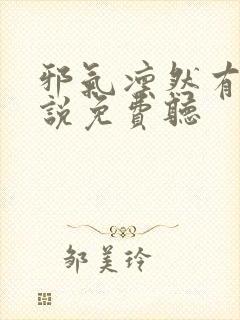 邪氣凜然有
說免費聽
鄒美玲